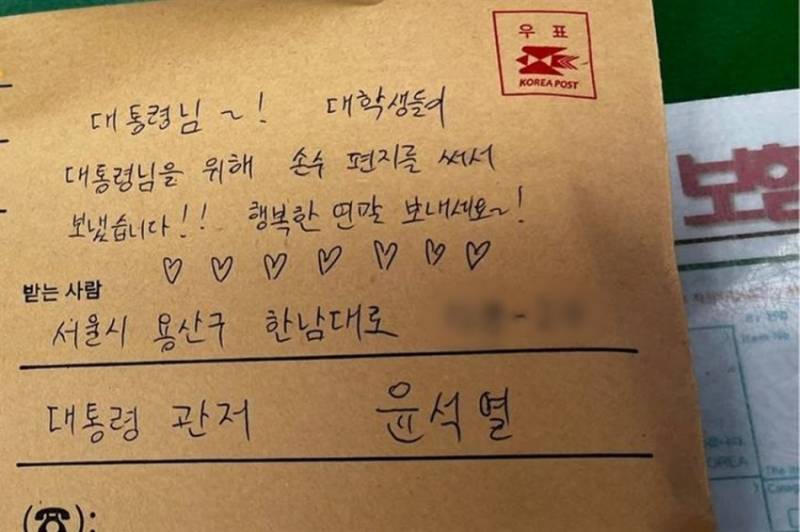 우 표
KOREA POST
대통령님 ~! 대학생들이
대통령님을 위해 손수 편지를 써서
보냈습니다!! 행복한 연말 보내세요~!
♡ ♡ ♡ ♡ ♡ ♡ ♡
받는 사람
서울시 용산구 한남대로
대통령 관저 윤석열
(☎):
보험